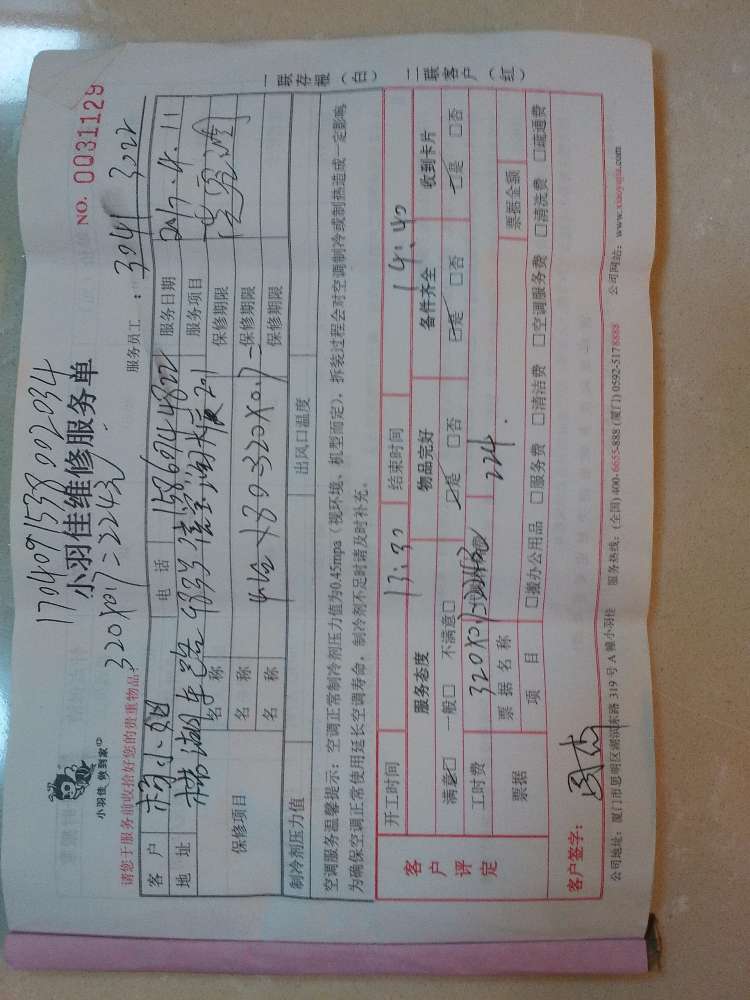 1704091538002034
NO. 0031129
小羽佳 做到家
小羽佳维修服务单
320×0.7=224元
服务员工: 3041 3022
请您于服务前收拾好您的贵重物品!
客户 杨小姐 电话 15867144822 服务日期 2017.4.11
地址 服务项目
保修项目 名称 保修期限
名称 4台×80=320×0.7 保修期限
名称 保修期限
制冷剂压力值 出风口温度
空调服务温馨提示:空调正常制冷剂压力值为0.45mpa(视环境、机型而定),拆装过程会对空调制冷或制热造成一定影响,
为确保空调正常使用延长空调寿命,制冷剂不足时请及时补充。
一联存根(白) 二联客户(红)
客户评定
开工时间 13:30 结束时间 14:40
服务态度 物品完好 备件齐全 收到卡片
满意☑ 一般□ 不满意□ ☑是 □否 ☑是 □否 ☑是 □否
工时费 320×0.7 224.
票据 票据名称 票据金额
项目 □搬办公用品 □服务费 □清洁费 □空调服务费 □清洗费 □疏通费
客户签字:
公司地址:厦门市思明区湖滨东路 319 号 A 幢小羽佳 服务热线:(全国)400-6655-888 (厦门) 0592-5178888 公司网站:www.xiaoyujia.com